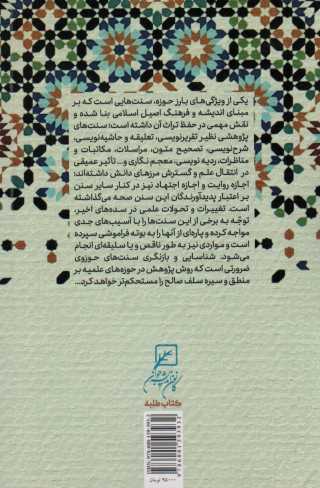 یکی از ویژگی‌های بارز حوزه، سنت‌هایی است که بر
مبنای اندیشه و فرهنگ اصیل اسلامی بنا شده و
نقش مهمی در حفظ تراث آن داشته است؛ سنت‌های
پژوهشی نظیر تقریرنویسی، تعلیقه و حاشیه‌نویسی،
شرح‌نویسی، تصحیح متون، مراسلات، مکاتبات و
مناظرات، ردیه نویسی، معجم نگاری و... تأثیر عمیقی
در انتقال علم و گسترش مرزهای دانش داشته‌اند؛
اجازه روایت و اجازه اجتهاد نیز در کنار سایر سنن
بر اعتبار پدیدآورندگان این سنن صحه می‌گذاشته
است. تغییرات و تحولات علمی در سده‌های اخیر،
توجّه به برخی از این سنت‌ها را با آسیب‌های جدی
مواجه کرده و پاره‌ای از آنها را به بوته فراموشی سپرده
است و مواردی نیز به طور ناقص و یا سلیقه‌ای انجام
می‌شود. شناسایی و بازنگری سنت‌های حوزوی
ضرورتی است که روش پژوهش در حوزه‌های علمیه بر
منطق و سیره سلف صالح را مستحکم‌تر خواهد کرد...
کتاب طلبه